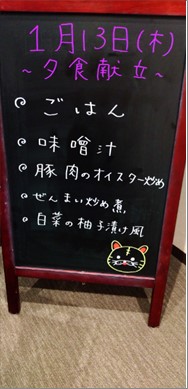 1月13日(木)
~夕食献立~
ごはん
味噌汁
豚肉のオイスター炒め
ぜんまい炒め煮
白菜の柚子漬け風